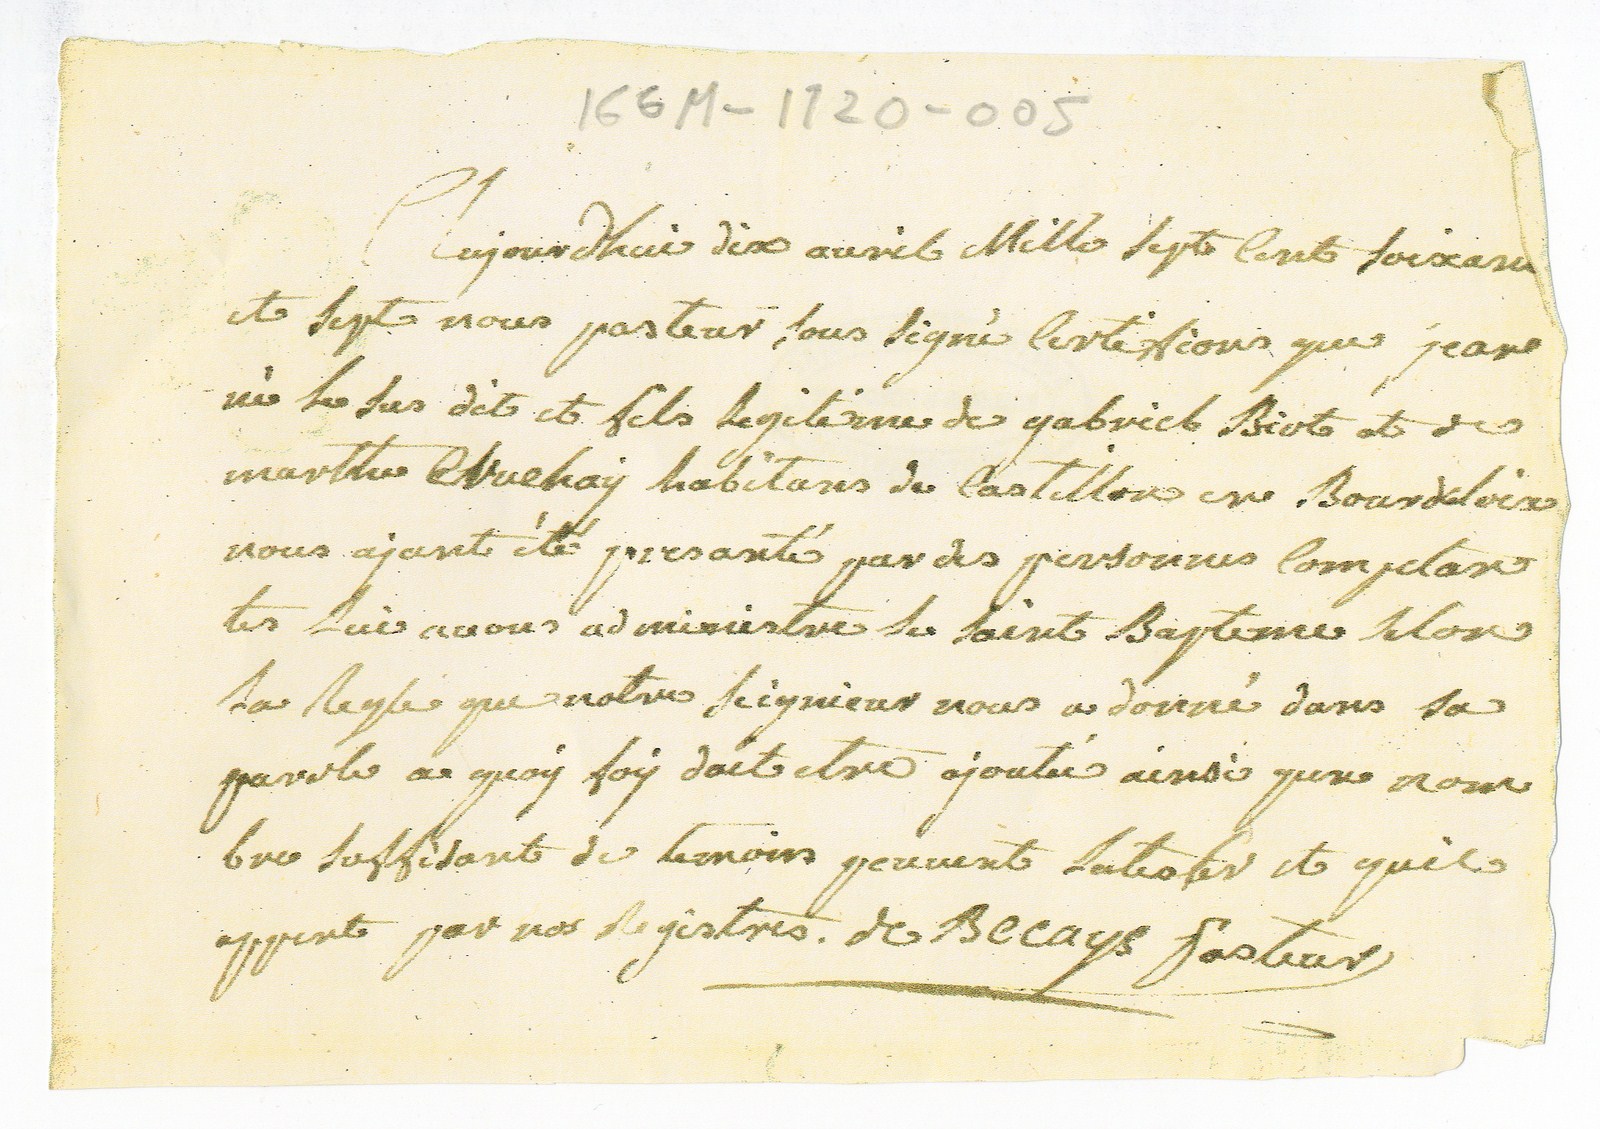 166M-1720-005
Aujourdhui dix avril Mille sept Cent soixan
et sept nous pasteur sous signé Certiffions que jean
né le sus dit et fils legitime de gabriel Biot et de
marthe habitans de Castillon en Bourdelois
nous ajant été presanté par des personnes Competan
tes lui avons administre le saint Bapteme selon
la Regle que notre seignieur nous a donné dans sa
parole a quoy foy doit etre ajoutée ainsi qun nom
bre suffisant de temoins peuvent latester et quil
appert par nos Registres. de Becays pasteur